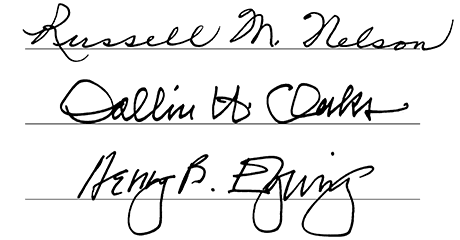 Russell M. Nelson
Dallin H. Oaks
Henry B. Eyring